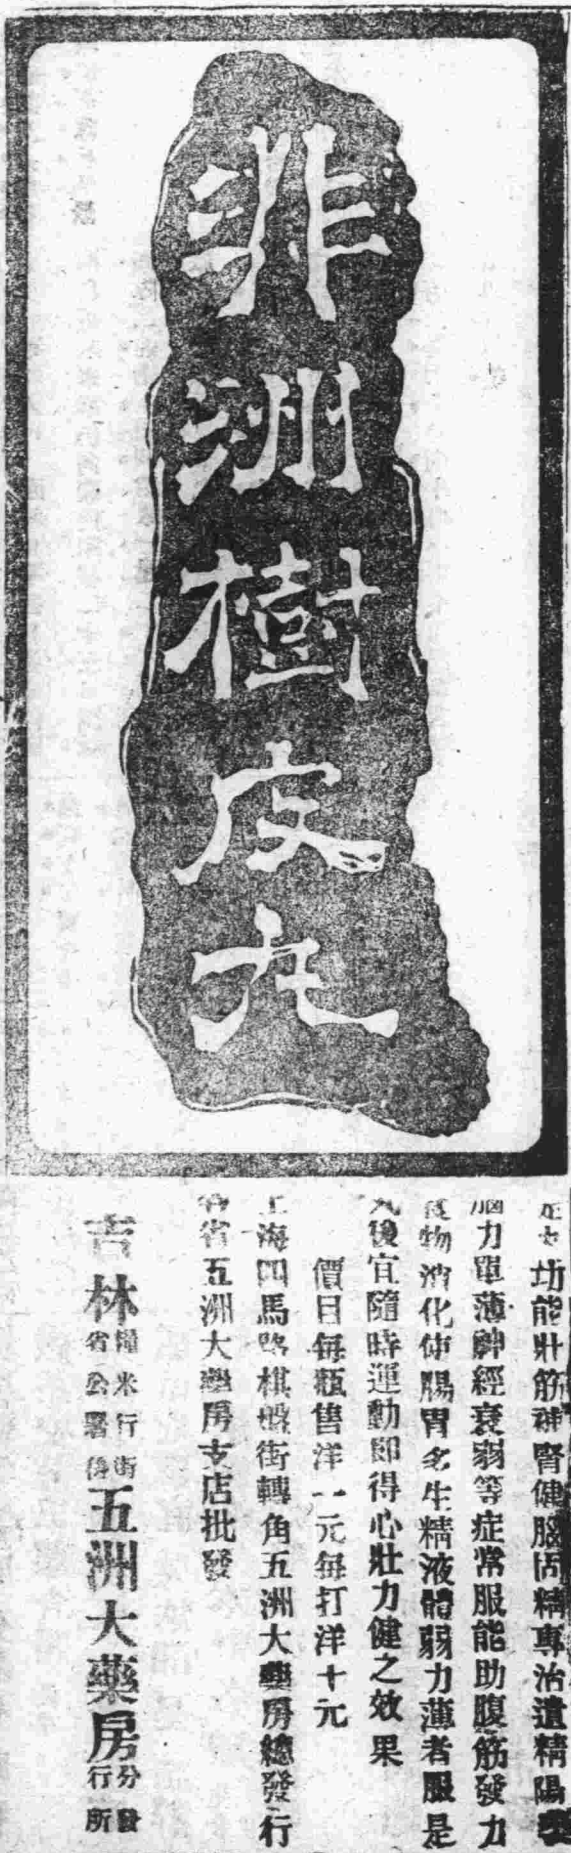 非洲樹皮丸
功能壯筋補腎健腦固精專治遺精陽
腦力單薄神經衰弱等症常服能助腹筋發力
食物消化使腸胃多生精液體弱力薄者服是
丸後宜隨時運動即得心壯力健之效果
價目每瓶售洋一元每打洋十元
上海四馬路棋盤街轉角五洲大藥房總發行
各省五洲大藥房支店批發
吉林糧米行街省公署後五洲大藥房分發行所